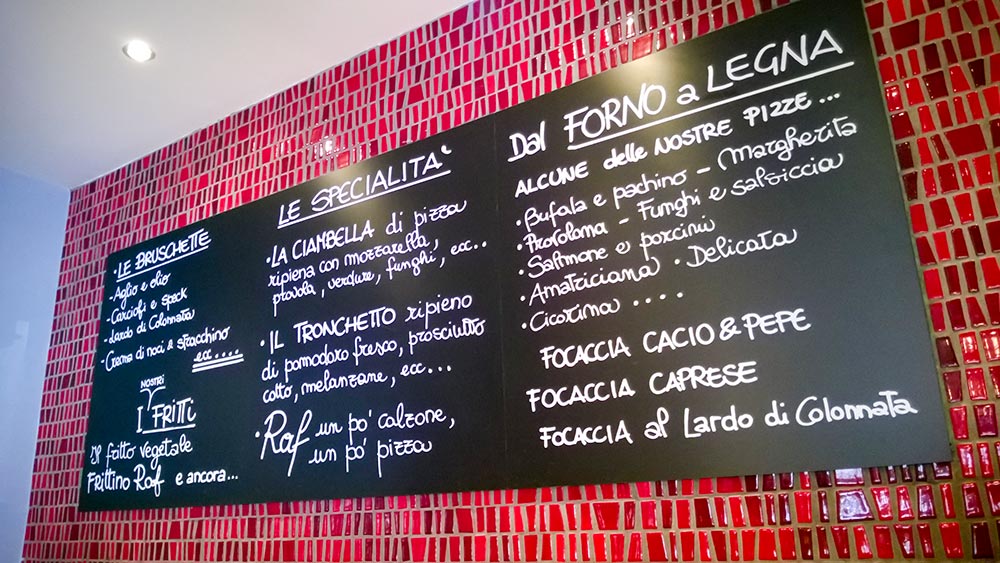 LE BRUSCHETTE
• Aglio e olio
• Carciofi e speck
• Lardo di Colonnata
• Crema di noci e stracchino
ecc....
I NOSTRI FRITTI
Il fritto vegetale
Frittino Raf e ancora...
LE SPECIALITA'
• LA CIAMBELLA di pizza
ripiena con mozzarella,
provola, verdure, funghi, ecc..
• IL TRONCHETTO ripieno
di pomodoro fresco, prosciutto
cotto, melanzane, ecc...
• Raf un po' calzone,
un po' pizza
Dal FORNO a LEGNA
ALCUNE delle NOSTRE PIZZE...
• Bufala e pachino - Margherita
• Provolama - Funghi e salsiccia
• Salmone e porcini
• Amatriciana • Delicata
• Cicorima ....
FOCACCIA CACIO & PEPE
FOCACCIA CAPRESE
FOCACCIA al Lardo di Colonnata